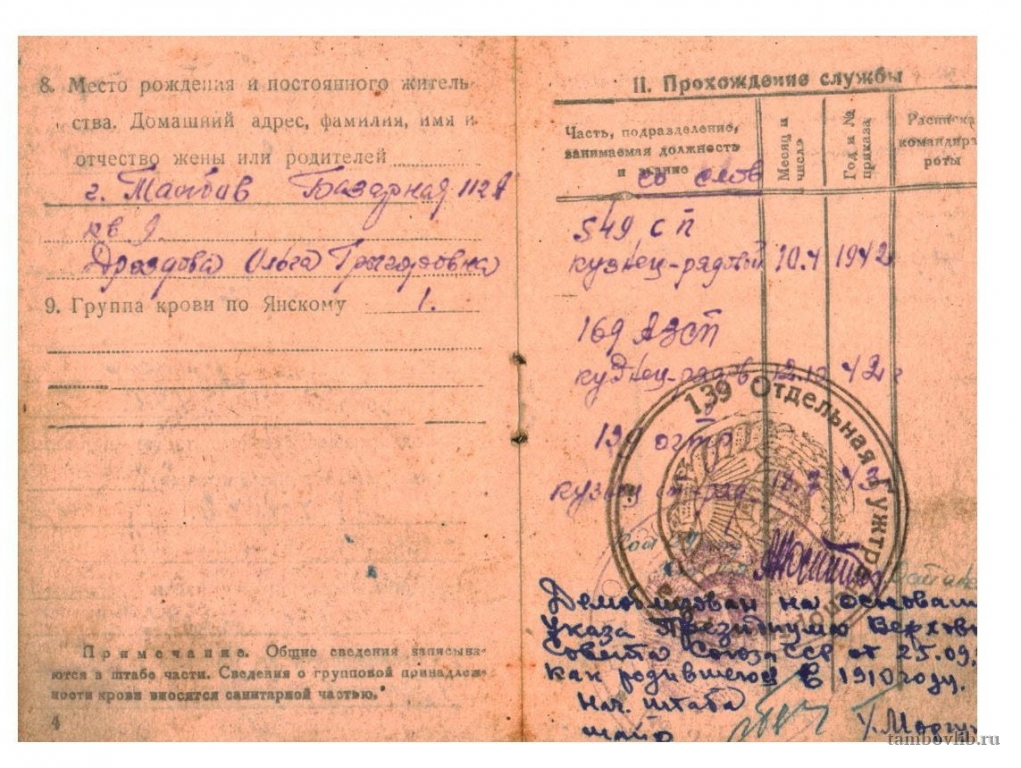 8. Место рождения и постоянного житель-
ства. Домашний адрес, фамилия, имя и
отчество жены или родителей
г. Базарная 112
кв 9.
Дроздова Ольга Григорьевна
9. Группа крови по Янскому 1.
Примечание. Общие сведения записыва-
ются в штабе части. Сведения о групповой принадлеж-
ности крови вносятся санитарной частью.
4
II. Прохождение службы
Часть, подразделение,
занимаемая должность
и звание
Месяц и
число
Год и №
приказа
Расписка
командира
роты
со слов
549 с п
кузнец-рядовой 10.4 1942
169 АЗСП
кузнец-рядов 42 г
139
кузнец
139 Отдельная Гужтр
Демобилизован на основан
Указа Президиума Верховн
Совета Союза ССР от 25.09.
как родившегося в 1910 году.
Нач. штаба
майор
tambovlib.ru